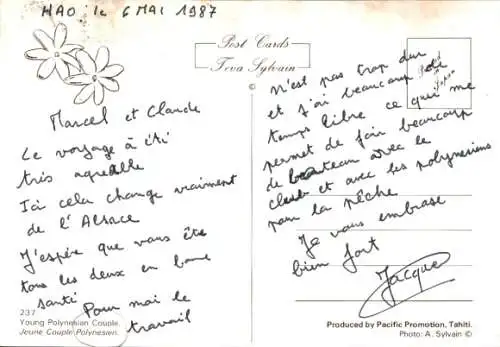 HAO : le 6 MAI 1987
Post Cards
Teva Sylvain
Marcel et Claude
Le voyage à été
très agréable
Ici cela change vraiment
de l'Alsace
J'espère que vous ête
tous les deux en bone
santé
Pour moi le
travail
237
Young Polynesian Couple.
Jeune Couple Polynésien.
n'est pas trop dur
et j'ai beaucoup de
temps libre ce qui me
permet de fair beaucoup
de bateau avec le
club et avec les polynesiens
pour la pêche
Je vous embrase
bien fort
Jacque
Produced by Pacific Promotion, Tahiti.
Photo: A. Sylvain ©